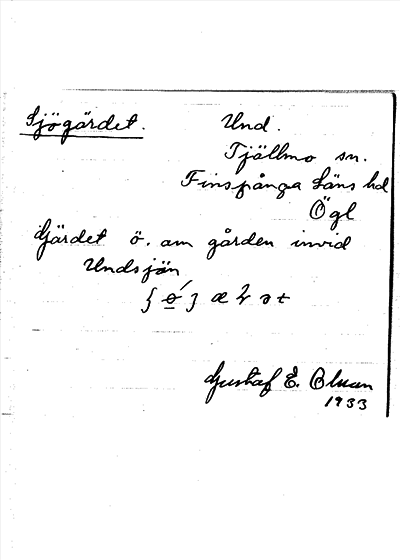 Sjögärdet.
Und.
Tjällmo sn.
Finspånga Läns hd
Ögl
Gärdet ö. om gården invid
Undsjön
Gustaf E. Olsson
1933